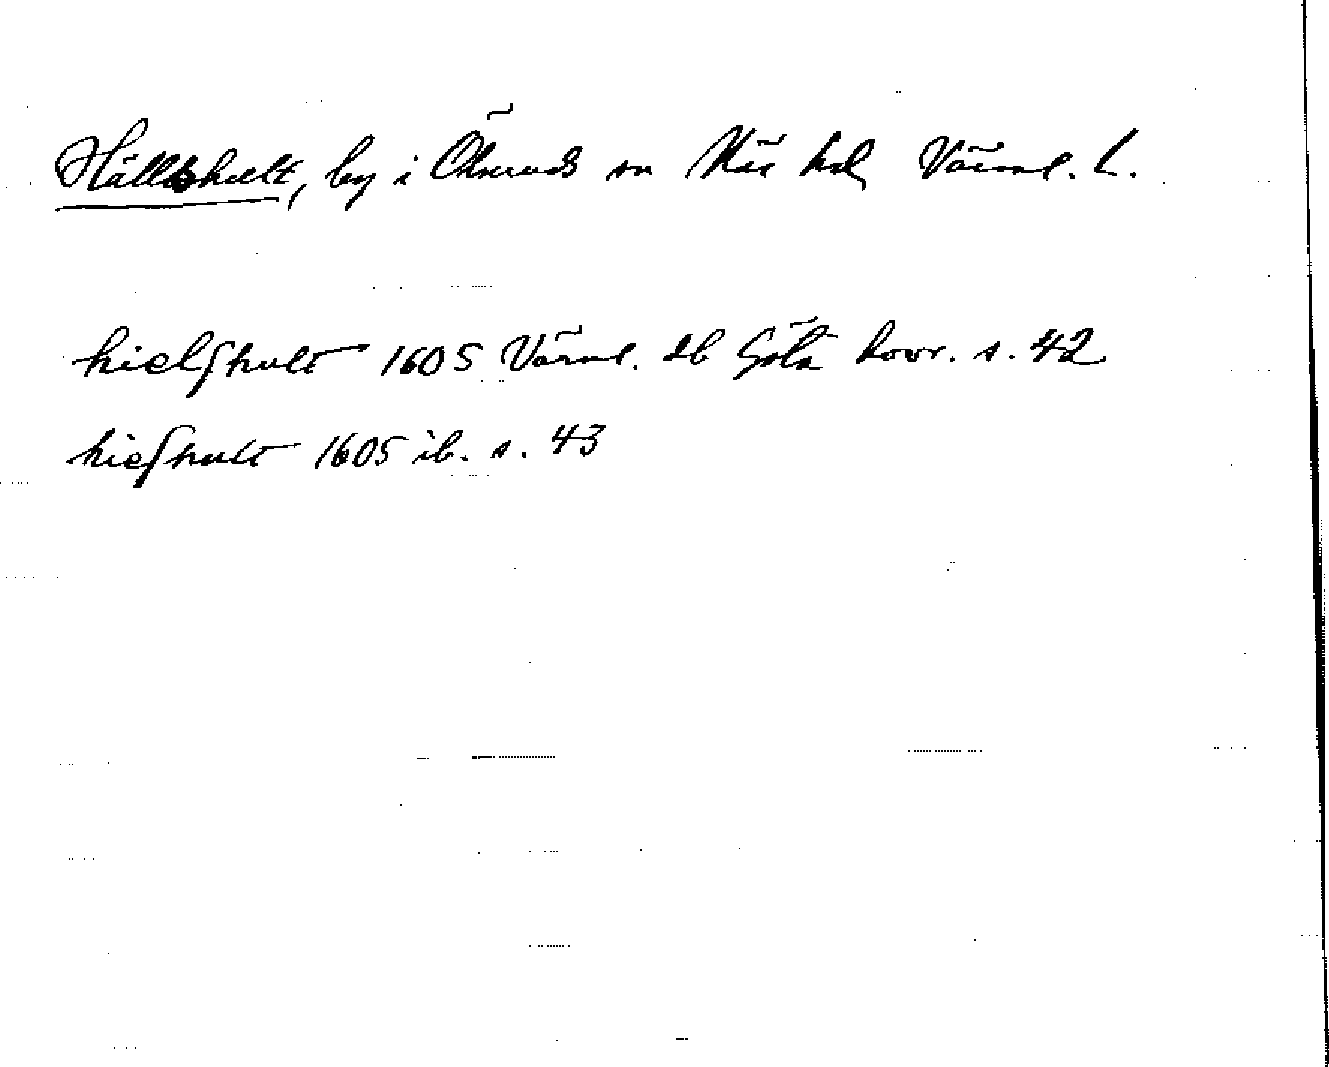 Hällshult, by i Ölseruds sn Näs hd, Värml. l.
hielſhult 1605 Värml. db Göta hovr. s. 42
hieſhult 1605 ib. s. 43